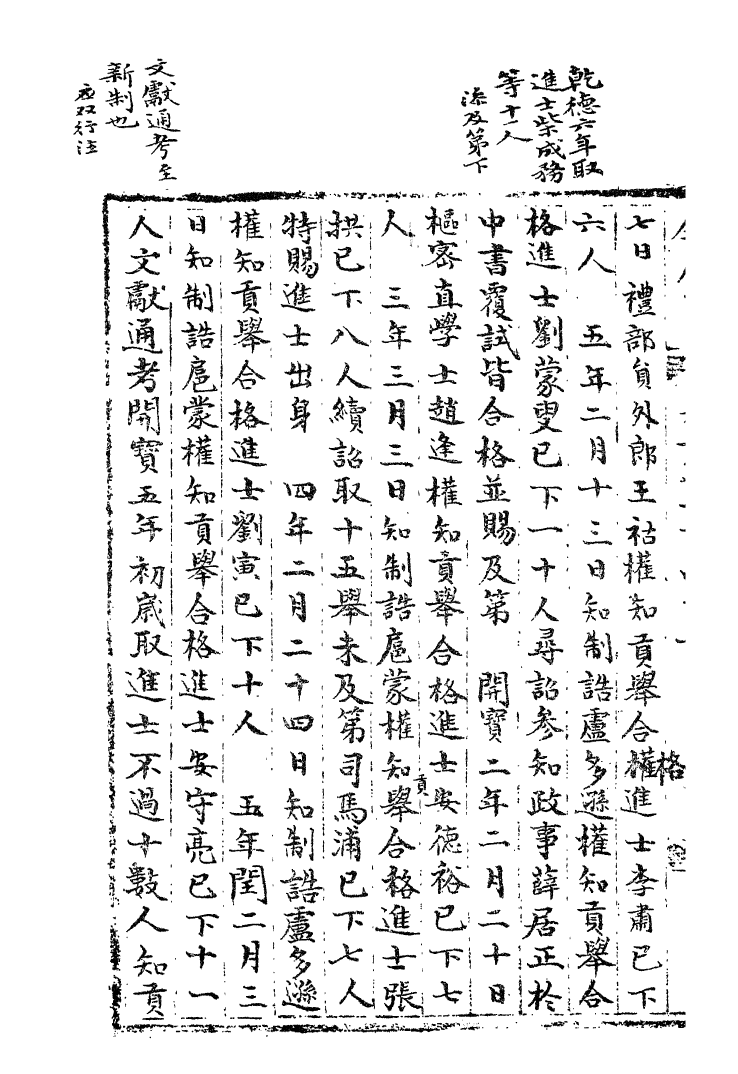 乾德六年取
進士柴成務
等十一人
添及第下
文獻通考至
新制也
应双行注
七日禮部員外郎王祜權知貢舉合權進士李肅已下
格
六人　五年二月十三日知制誥盧多遜權知貢舉合
格進士劉蒙叟已下一十人尋詔參知政事薛居正於
中書覆試皆合格並賜及第　開寶二年二月二十日
樞密直學士趙逢權知貢舉合格進士安德裕已下七
人　三年三月三日知制誥扈蒙權知舉合格進士張
貢
拱已下八人續詔取十五舉未及第司馬浦已下七人
特賜進士出身　四年二月二十四日知制誥盧多遜
權知貢舉合格進士劉寅已下十人　五年閏二月三
日知制誥扈蒙權知貢舉合格進士安守亮已下十一
人文獻通考開寶五年初歲取進士不過十數人知貢